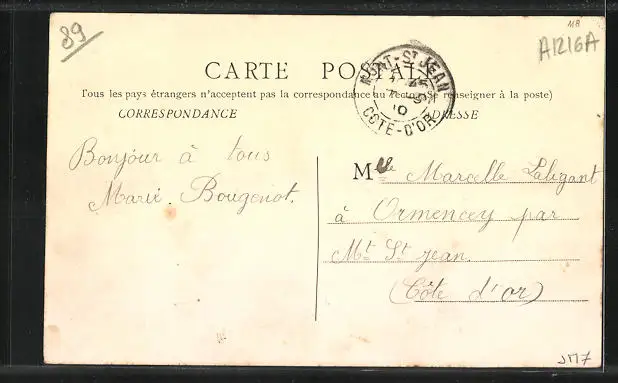 89
MB
A1216A
CARTE POSTALE
MONT-ST JEAN
10
COTE-D'OR
Tous les pays étrangers n'acceptent pas la correspondance au recto. (Se renseigner à la poste)
CORRESPONDANCE
ADRESSE
Bonjour à tous
Marie. Bougenot.
Mlle Marcelle Laligant
à Ormencey par
Mt. St. jean.
(Côte d'or)